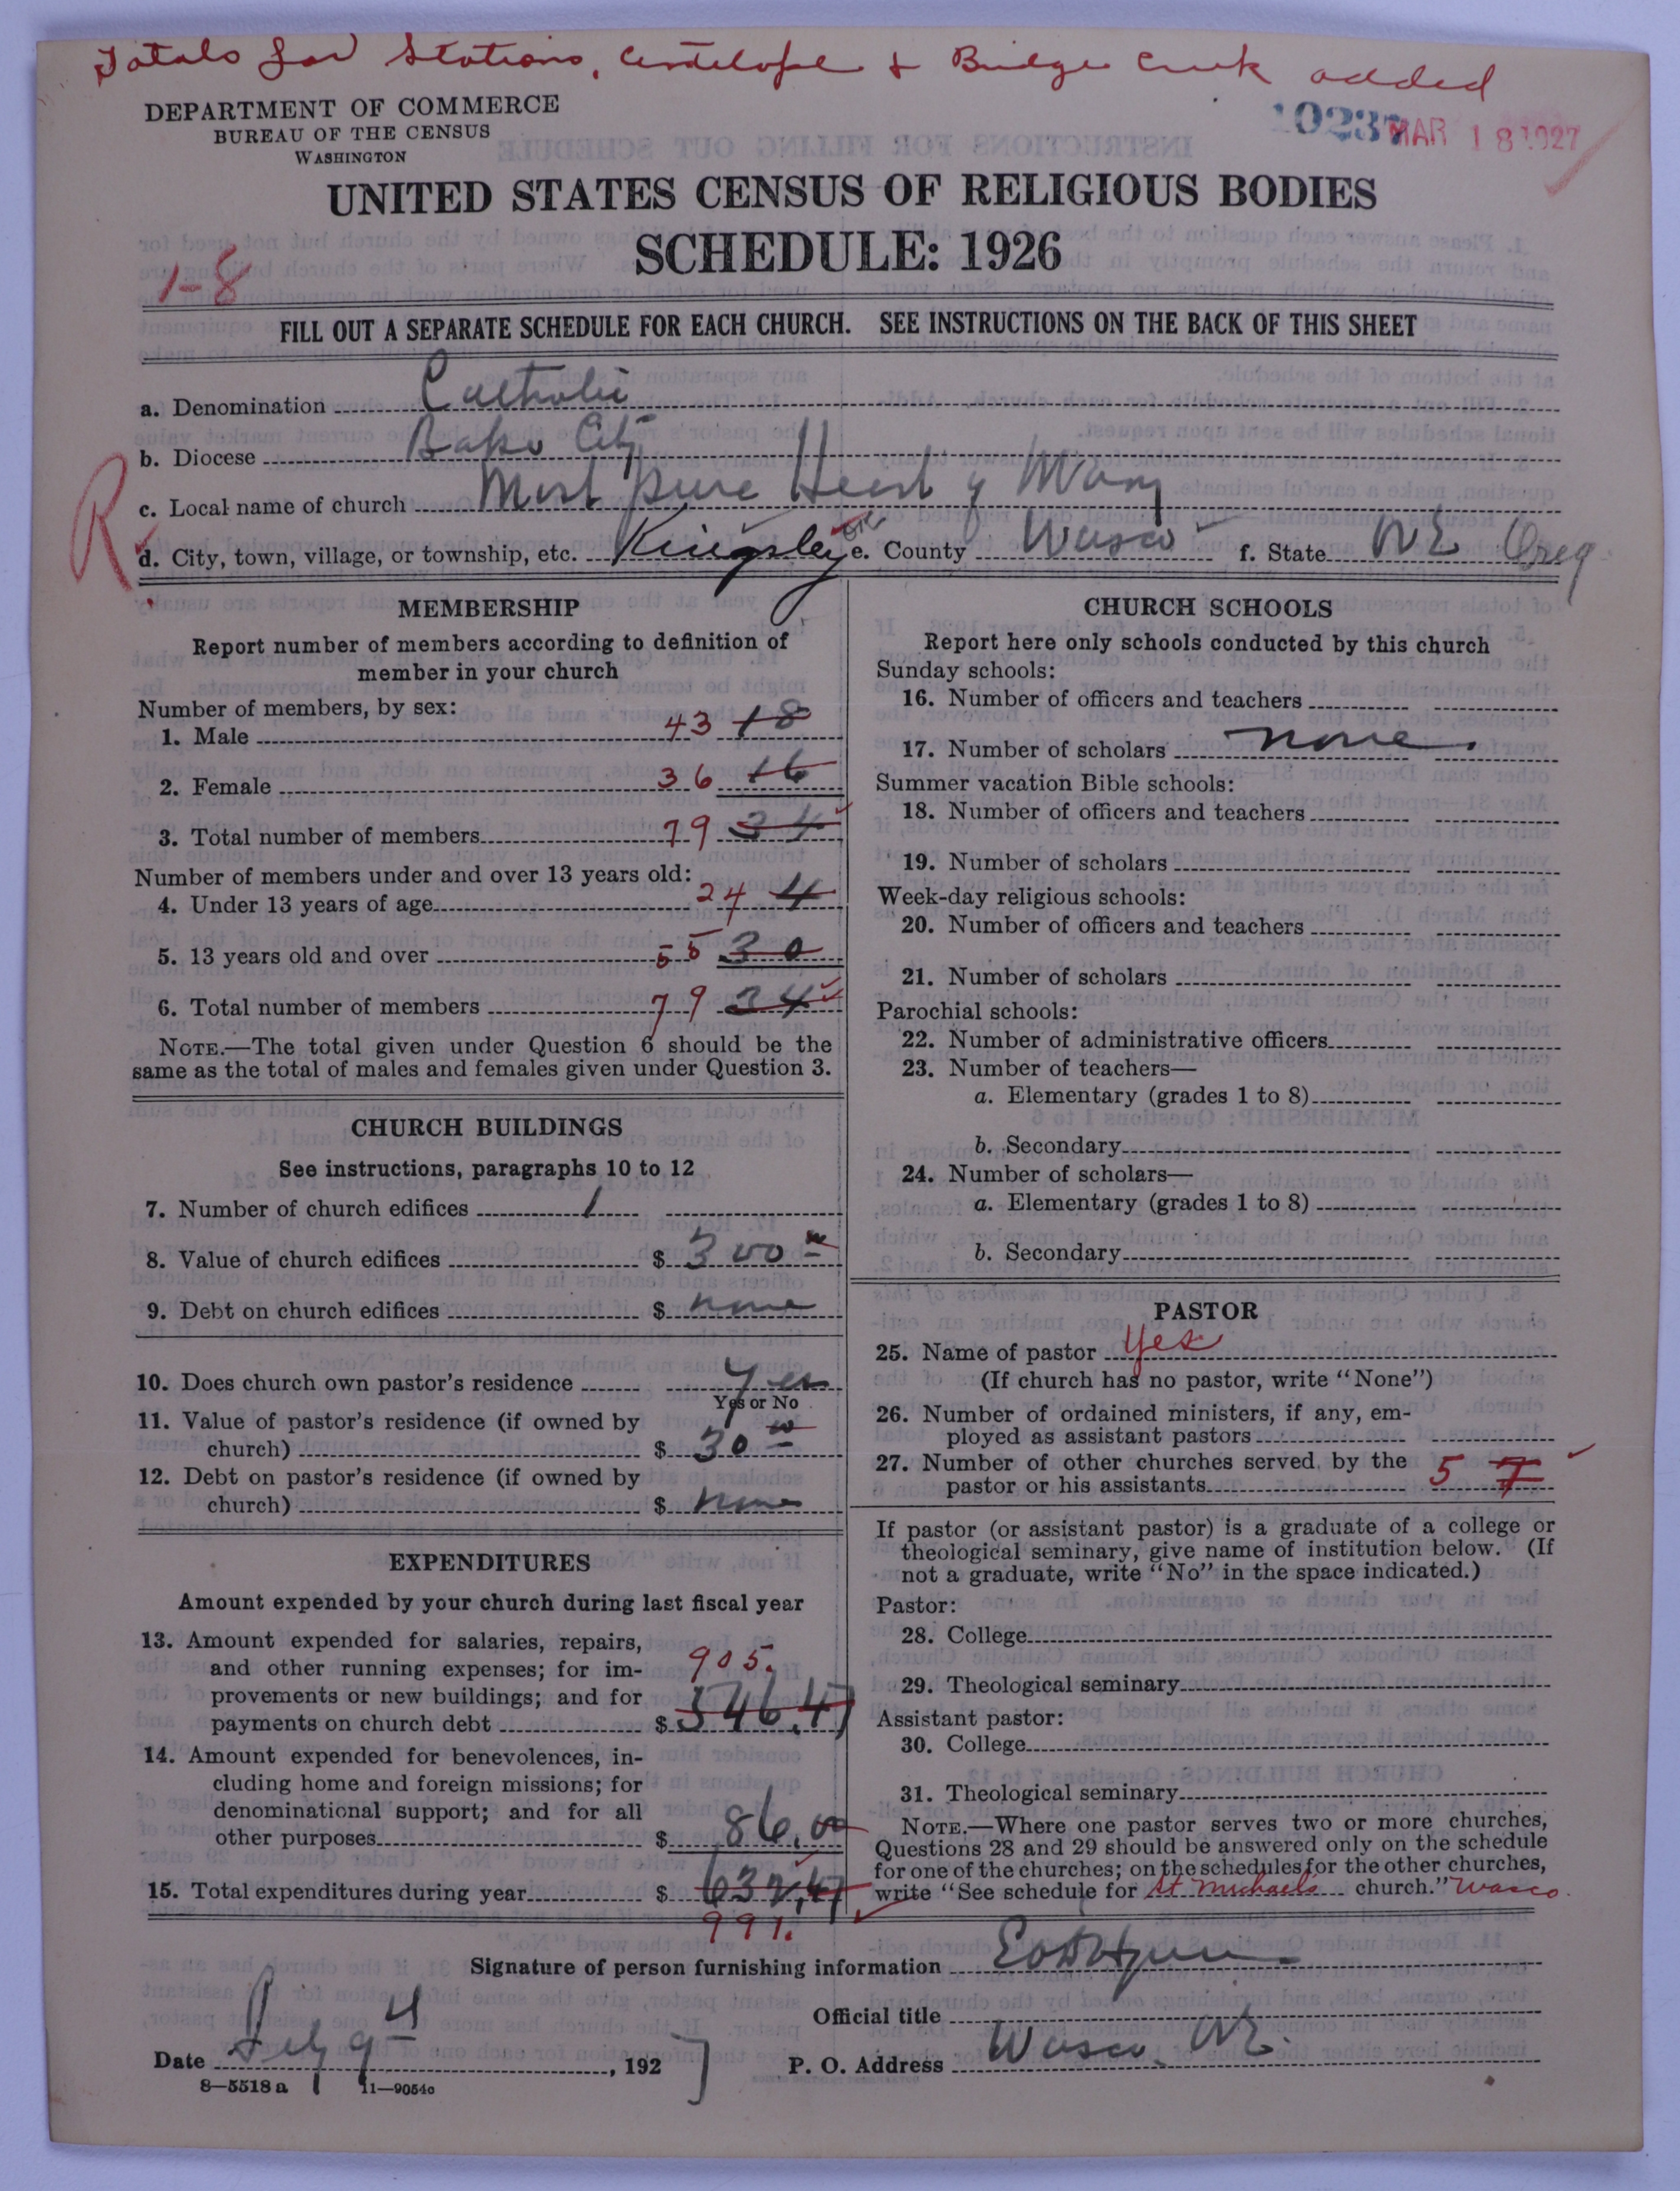 Totals for Stations, Antelope & Bridge Creek added
DEPARTMENT OF COMMERCE
BUREAU OF THE CENSUS
WASHINGTON
10237 MAR 18 1927
UNITED STATES CENSUS OF RELIGIOUS BODIES
SCHEDULE: 1926
1-8
FILL OUT A SEPARATE SCHEDULE FOR EACH CHURCH. SEE INSTRUCTIONS ON THE BACK OF THIS SHEET
a. Denomination Catholic
b. Diocese Baker City
c. Local name of church Most Pure Heart of Mary
R
d. City, town, village, or township, etc. Kingsley e. County Wasco f. State Ore Oreg
MEMBERSHIP
Report number of members according to definition of
member in your church
Number of members, by sex:
1. Male 43 18
2. Female 36 16
3. Total number of members 79 34
Number of members under and over 13 years old:
4. Under 13 years of age 24 4
5. 13 years old and over 55 30
6. Total number of members 79 34
NOTE.—The total given under Question 6 should be the
same as the total of males and females given under Question 3.
CHURCH BUILDINGS
See instructions, paragraphs 10 to 12
7. Number of church edifices 1
8. Value of church edifices $ 300 00
9. Debt on church edifices $ none
10. Does church own pastor's residence yes
Yes or No
11. Value of pastor's residence (if owned by
church) $ 30 00
12. Debt on pastor's residence (if owned by
church) $ none
EXPENDITURES
Amount expended by your church during last fiscal year
13. Amount expended for salaries, repairs,
and other running expenses; for im- 905.
provements or new buildings; and for
payments on church debt $ 546.47
14. Amount expended for benevolences, in-
cluding home and foreign missions; for
denominational support; and for all
other purposes $ 86.00
15. Total expenditures during year $ 632.47
991.
CHURCH SCHOOLS
Report here only schools conducted by this church
Sunday schools:
16. Number of officers and teachers
17. Number of scholars none.
Summer vacation Bible schools:
18. Number of officers and teachers
19. Number of scholars
Week-day religious schools:
20. Number of officers and teachers
21. Number of scholars
Parochial schools:
22. Number of administrative officers
23. Number of teachers—
a. Elementary (grades 1 to 8)
b. Secondary
24. Number of scholars—
a. Elementary (grades 1 to 8)
b. Secondary
PASTOR
25. Name of pastor Yes
(If church has no pastor, write "None")
26. Number of ordained ministers, if any, em-
ployed as assistant pastors
27. Number of other churches served by the
pastor or his assistants 5 7
If pastor (or assistant pastor) is a graduate of a college or
theological seminary, give name of institution below. (If
not a graduate, write "No" in the space indicated.)
Pastor:
28. College
29. Theological seminary
Assistant pastor:
30. College
31. Theological seminary
NOTE.—Where one pastor serves two or more churches,
Questions 28 and 29 should be answered only on the schedule
for one of the churches; on the schedules for the other churches,
write "See schedule for St Michaels church." Wasco
Signature of person furnishing information
Official title
Date Feby 9 , 1927 P. O. Address Wasco Ore.
8—5518 a 11—9054c